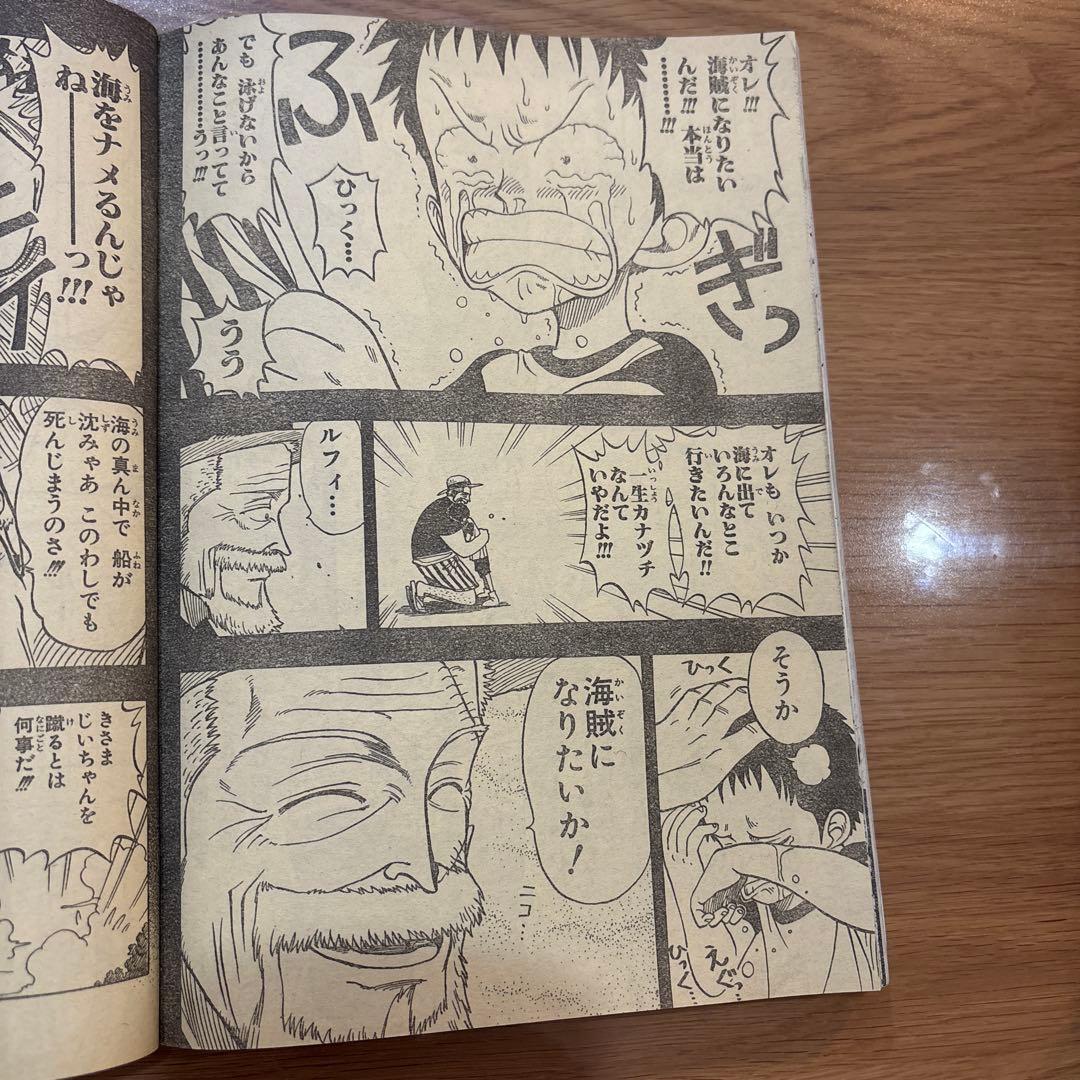 オレ!!!
海賊になりたい
んだ!!! 本当は
…………!!!
ぎっ
ふ
でも 泳げないから
あんなこと言ってて
……………うっ!!!
ひっく…
うう
オレも いつか
海に出て
いろんなとこ
行きたいんだ!!
一生カナヅチ
なんて
いやだよ!!!
ルフィ…
そうか
ひっく
えぐっ…
ひっく…
海賊に
なりたいか!
ニコ…
海をナメるんじゃ
ね――――――っ!!!
海の真ん中で 船が
沈みゃあ このわしでも
死んじまうのさ!!!
きさま
じいちゃんを
蹴るとは
何事だ!!!